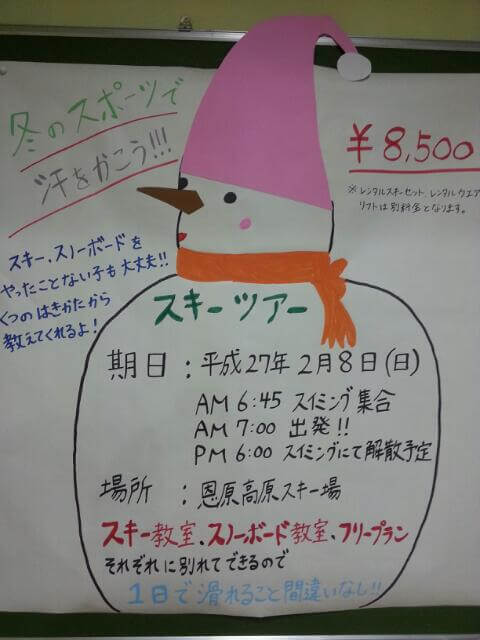 冬のスポーツで
汗をかこう!!!
¥8,500
※レンタルスキーセット、レンタルウエア
リフトは別料金となります。
スキー、スノーボードを
やったことない子も大丈夫!!
くつのはきかたから
教えてくれるよ!
スキーツアー
期日:平成27年2月8日(日)
AM 6:45 スイミング集合
AM 7:00 出発!!
PM 6:00 スイミングにて解散予定
場所:恩原高原スキー場
スキー教室、スノーボード教室、フリープラン
それぞれに別れてできるので
1日で滑れること間違いなし!!